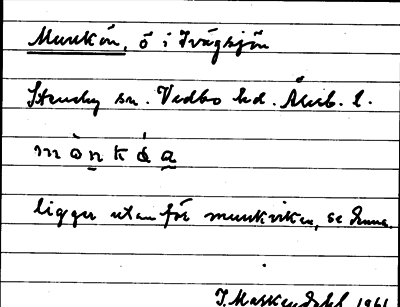 Munkön, ö i Ivägsjön
Steneby sn. Vedbo hd. Älvsb. l.
mòn̠káa̠
ligger utanför munkviken, se denna.
1961